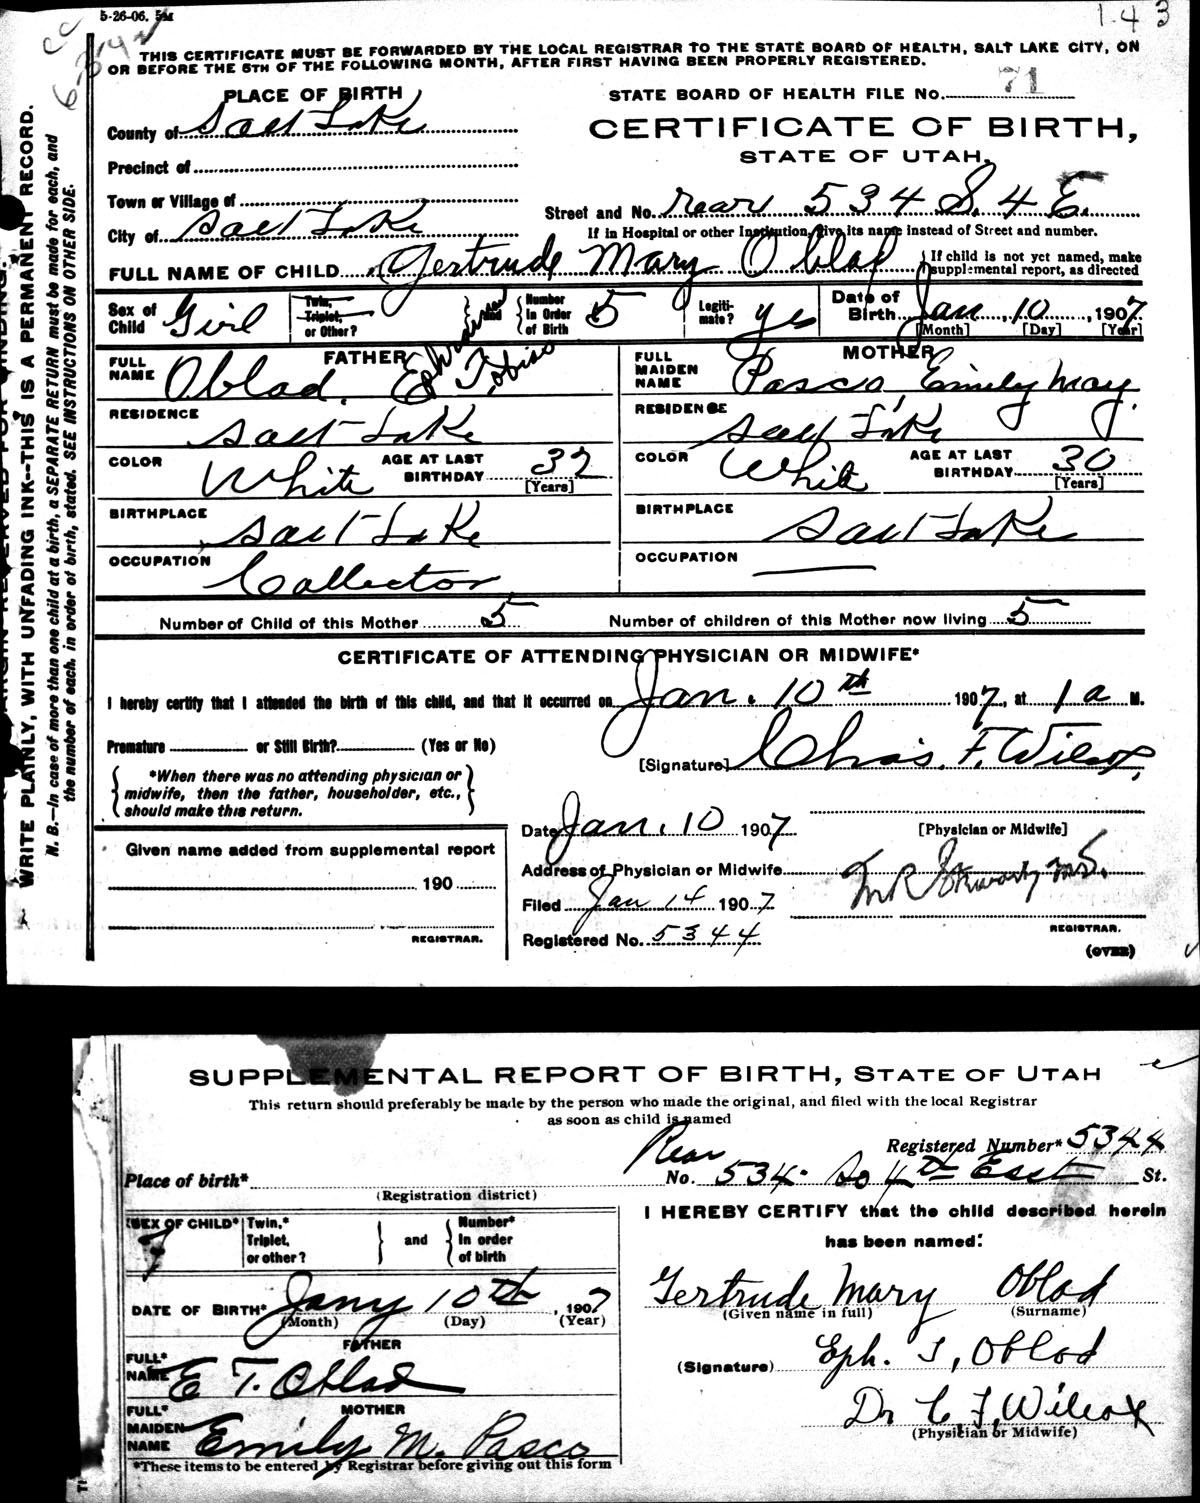 5-26-06. 5M
1 4 3
THIS CERTIFICATE MUST BE FORWARDED BY THE LOCAL REGISTRAR TO THE STATE BOARD OF HEALTH, SALT LAKE CITY, ON
OR BEFORE THE 5TH OF THE FOLLOWING MONTH, AFTER FIRST HAVING BEEN PROPERLY REGISTERED.
WRITE PLAINLY, WITH UNFADING INK--THIS IS A PERMANENT RECORD.
N. B.—In case of more than one child at a birth, a SEPARATE RETURN must be made for each, and
the number of each, in order of birth, stated. SEE INSTRUCTIONS ON OTHER SIDE.
PLACE OF BIRTH
STATE BOARD OF HEALTH FILE No. 71
County of Salt Lake
CERTIFICATE OF BIRTH,
STATE OF UTAH.
Precinct of
Town or Village of
Street and No. rear 534 S. 4 E.
City of Salt Lake
If in Hospital or other Institution, give its name instead of Street and number.
FULL NAME OF CHILD Gertrude Mary Oblad
If child is not yet named, make
supplemental report, as directed
Sex of Child Girl
Twin, Triplet, or Other?
and
Number In Order of Birth 5
Legiti-mate? yes
Date of Birth Jan 10, 1907
[Month] [Day] [Year]
FATHER
FULL NAME Oblad, Ephraim Tobias
MOTHER
FULL MAIDEN NAME Pasco, Emily May.
RESIDENCE Salt Lake
RESIDENCE Salt Lake
COLOR White
AGE AT LAST BIRTHDAY 32 [Years]
COLOR White
AGE AT LAST BIRTHDAY 30 [Years]
BIRTHPLACE Salt Lake
BIRTHPLACE Salt Lake
OCCUPATION Collector
OCCUPATION
Number of Child of this Mother 5
Number of children of this Mother now living 5
CERTIFICATE OF ATTENDING PHYSICIAN OR MIDWIFE*
I hereby certify that I attended the birth of this child, and that it occurred on Jan. 10th 1907, at 1 a M.
Premature or Still Birth? (Yes or No)
[Signature] Chas. F. Wilcox,
*When there was no attending physician or
midwife, then the father, householder, etc.,
should make this return.
Date Jan. 10 1907
[Physician or Midwife]
Given name added from supplemental report
Address of Physician or Midwife
190
Filed Jan 14 1907
REGISTRAR.
Registered No. 5344
REGISTRAR.
(OVER)
SUPPLEMENTAL REPORT OF BIRTH, STATE OF UTAH
This return should preferably be made by the person who made the original, and filed with the local Registrar
as soon as child is named
Registered Number* 5344
Place of birth*
(Registration district)
Rear
No. 534 So 4th East St.
SEX OF CHILD* F
Twin,* Triplet, or other?
and
Number* In order of birth
I HEREBY CERTIFY that the child described herein
has been named:
DATE OF BIRTH* Jany 10th, 1907
(Month) (Day) (Year)
Gertrude Mary Oblad
(Given name in full) (Surname)
FATHER
FULL* NAME E T. Oblad
(Signature) Eph. T, Oblad
MOTHER
FULL* MAIDEN NAME Emily M. Pasco
Dr C. F, Wilcox
(Physician or Midwife)
*These items to be entered by Registrar before giving out this form